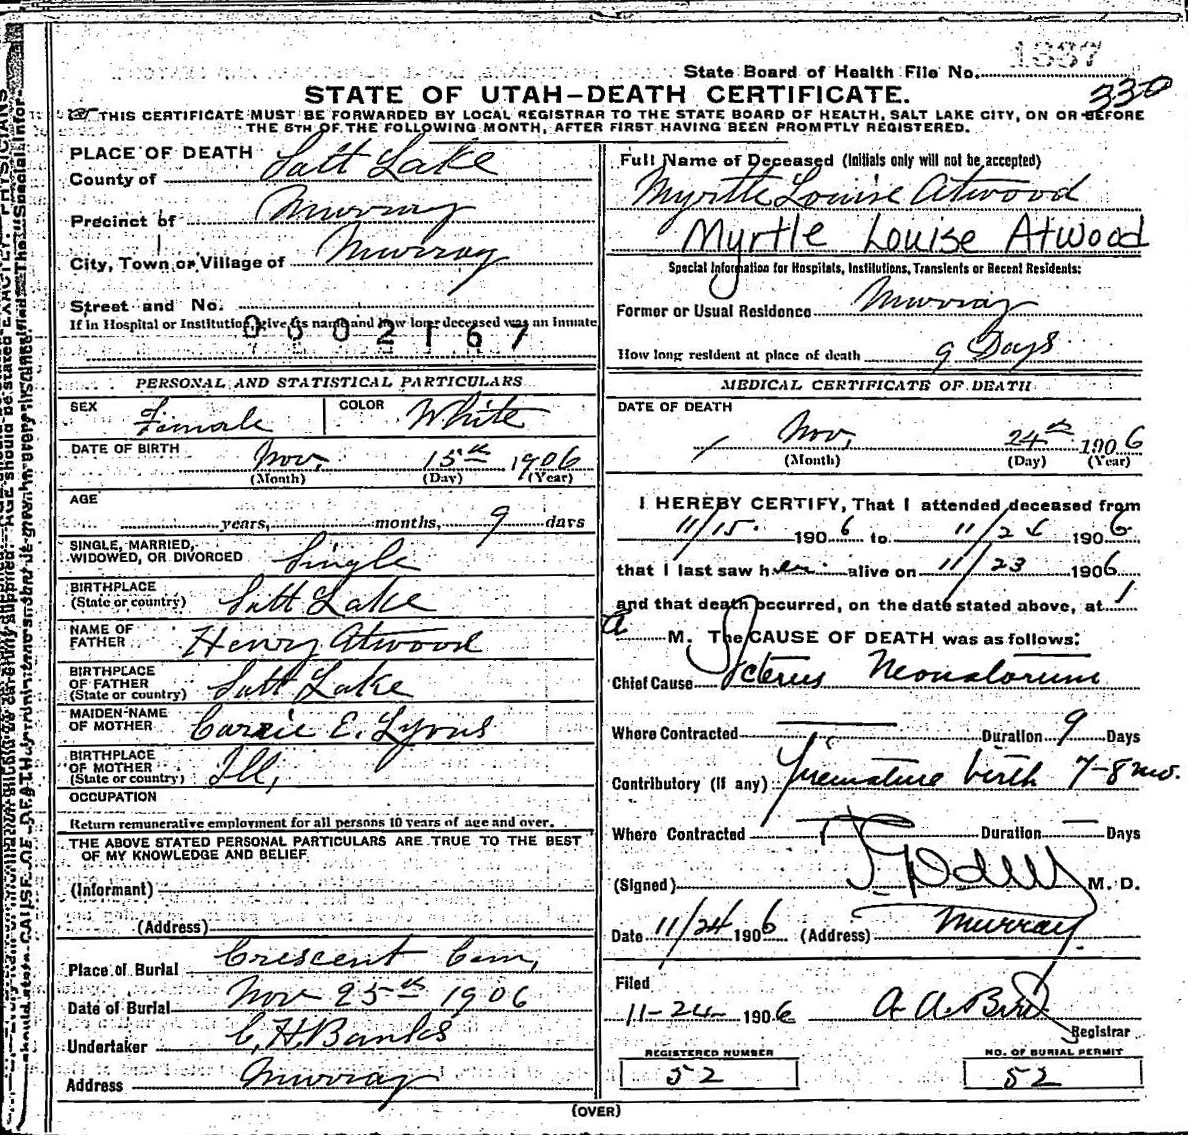 1337
State Board of Health File No.
330
STATE OF UTAH—DEATH CERTIFICATE.
THIS CERTIFICATE MUST BE FORWARDED BY LOCAL REGISTRAR TO THE STATE BOARD OF HEALTH, SALT LAKE CITY, ON OR BEFORE
THE 5TH OF THE FOLLOWING MONTH, AFTER FIRST HAVING BEEN PROMPTLY REGISTERED.
PLACE OF DEATH
County of Salt Lake
Precinct of Murray
City, Town or Village of Murray
Street and No.
If in Hospital or Institution, give its name and how long deceased was an Inmate
0602167
PERSONAL AND STATISTICAL PARTICULARS
SEX Female COLOR White
DATE OF BIRTH Nov. 15th 1906
(Month) (Day) (Year)
AGE
years, months, 9 days
SINGLE, MARRIED,
WIDOWED, OR DIVORCED Single
BIRTHPLACE
(State or country) Salt Lake
NAME OF
FATHER Henry Atwood
BIRTHPLACE
OF FATHER
(State or country) Salt Lake
MAIDEN-NAME
OF MOTHER Carrie E. Lyons
BIRTHPLACE
OF MOTHER
(State or country) Ill,
OCCUPATION
Return remunerative employment for all persons 10 years of age and over.
THE ABOVE STATED PERSONAL PARTICULARS ARE TRUE TO THE BEST
OF MY KNOWLEDGE AND BELIEF
(Informant)
(Address)
Place of Burial Crescent Cem,
Date of Burial Nov 25th 1906
Undertaker C. H. Banks
Address Murray
Full Name of Deceased (Initials only will not be accepted)
Myrtle Louise Atwood
Myrtle Louise Atwood
Special Information for Hospitals, Institutions, Transients or Recent Residents:
Former or Usual Residence Murray
How long resident at place of death 9 Days
MEDICAL CERTIFICATE OF DEATH
DATE OF DEATH
Nov, 24th 1906
(Month) (Day) (Year)
I HEREBY CERTIFY, That I attended deceased from
11/15. 1906 to 11/24 1906
that I last saw her alive on 11/23 1906
and that death occurred, on the date stated above, at 1
a M. The CAUSE OF DEATH was as follows:
Chief Cause Icterus Neonatorum
Where Contracted Duration 9 Days
Contributory (if any) Premature birth 7-8 mo.
Where Contracted Duration — Days
(Signed) M. D.
Date 11/24 1906 (Address) Murray.
Filed
11-24- 1906 A A Bird
Registrar
REGISTERED NUMBER
52
NO. OF BURIAL PERMIT
52
(OVER)